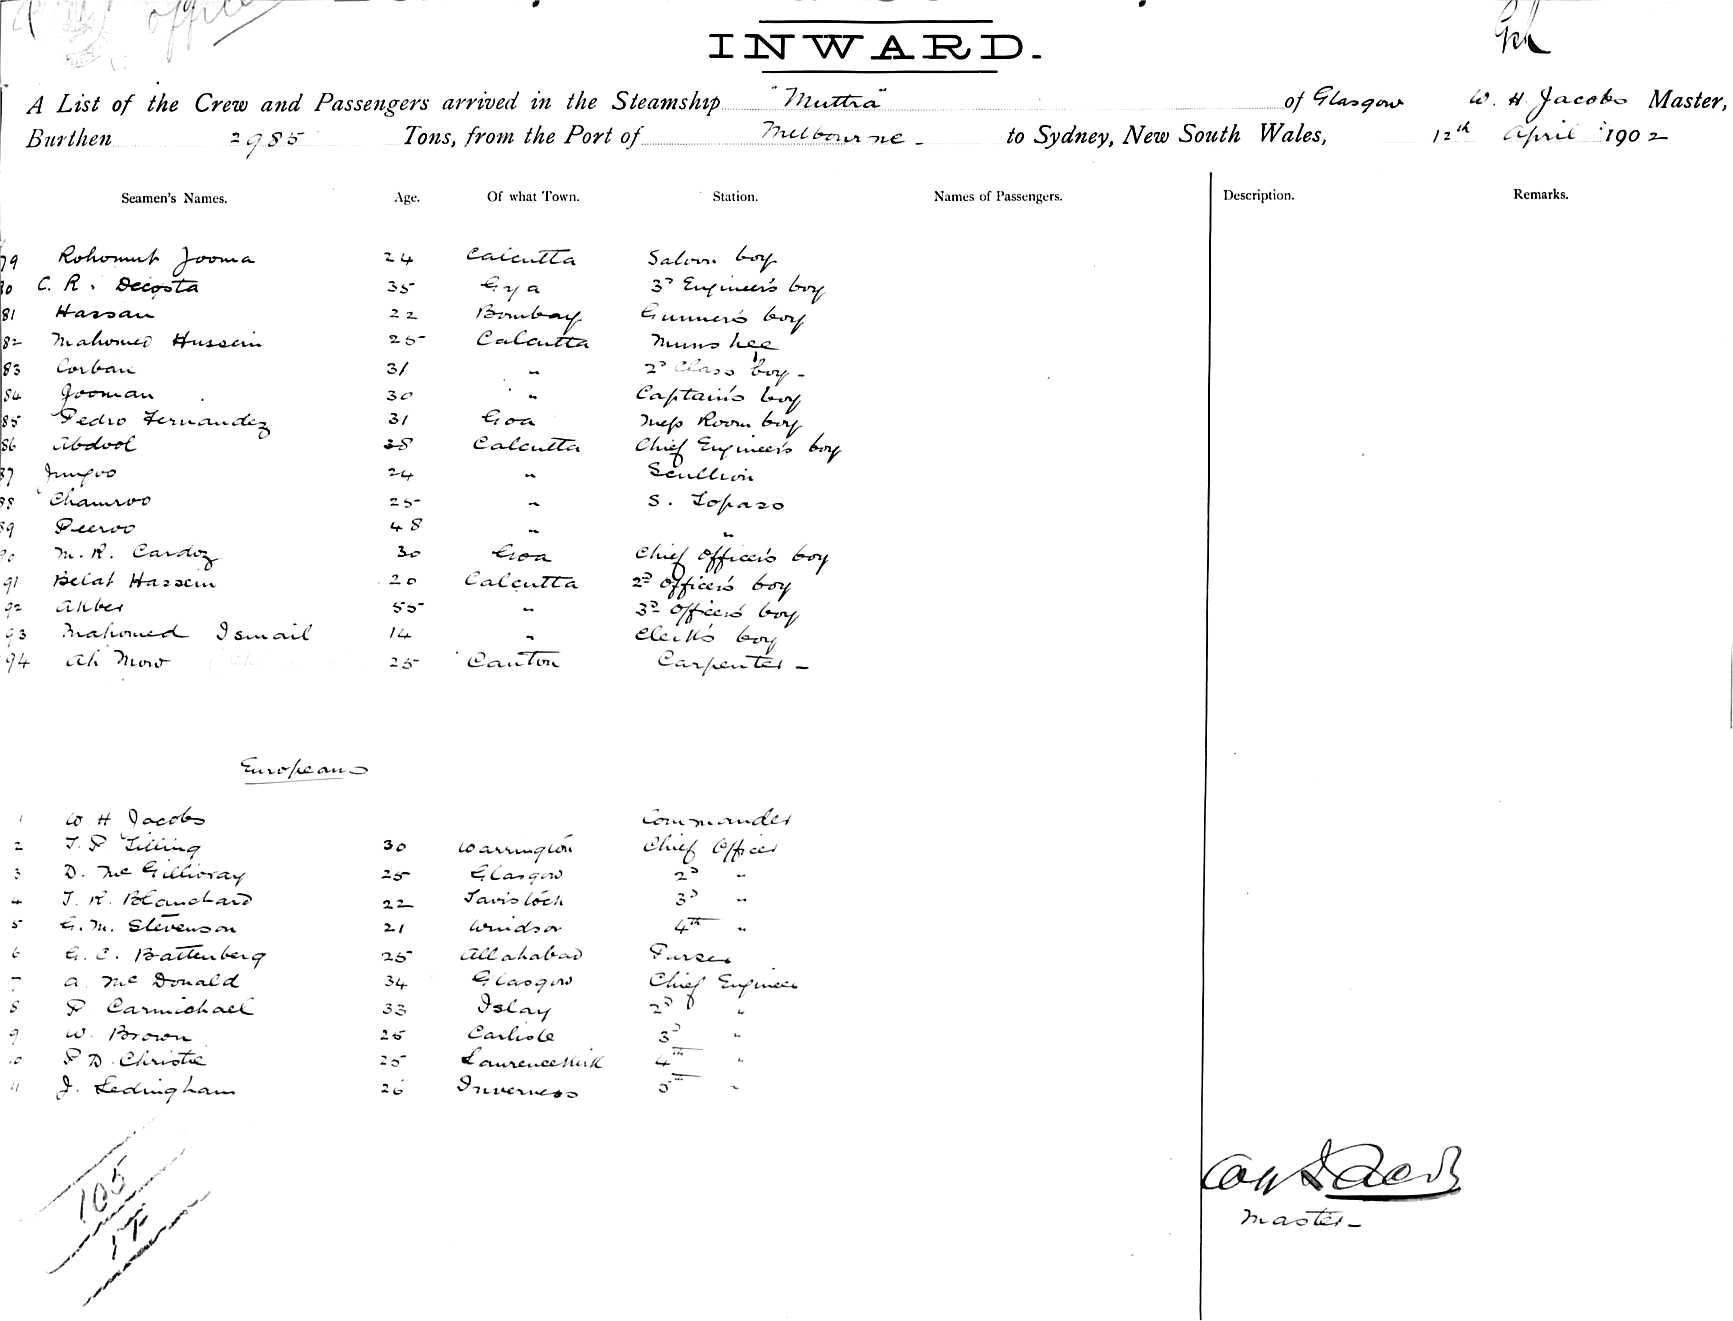 office
INWARD.
A List of the Crew and Passengers arrived in the Steamship "Muttra" of Glasgow W. H. Jacobs Master,
Burthen 2985 Tons, from the Port of Melbourne - to Sydney, New South Wales, 12th April 1902
Seamen's Names. Age. Of what Town. Station. Names of Passengers. Description. Remarks.
79 Rohomut Jooma 24 Calcutta Saloon boy
80 C. R. Decosta 35 Gya 3D Engineer's boy
81 Hassan 22 Bombay Gunner's boy
82 Mahomed Hussein 25 Calcutta Munshee
83 Corban 31 " 2D Class boy -
84 Jooman 30 " Captain's boy
85 Pedro Fernandez 31 Goa Mess Room boy
86 Abdool 38 Calcutta Chief Engineer's boy
87 24 " Scullion
88 Chamroo 25 " S. Topass
89 Peeroo 48 " "
90 M. R. Cardoz 30 Goa Chief Officer's boy
91 Belat Hassein 20 Calcutta 2D Officer's boy
92 Akber 55 " 3D Officers boy
93 Mahomed Ismail 14 " Clerk's boy
94 Ah Mow 25 Canton Carpenter -
Europeans
1 W H Jacobs Commander
2 T. P Tilling 30 Warrington Chief Officer
3 D. McGillivray 25 Glasgow 2D "
4 T. R. Blanchard 22 Tavistock 3D "
5 G. M. Stevenson 21 Windsor 4th "
6 G. C. Battenberg 25 Allahabad Purser
7 A. McDonald 34 Glasgow Chief Engineer
8 P Carmichael 33 Islay 2D "
9 W. Brown 25 Carlisle 3D "
10 P D. Christie 25 Laurencekirk 4th "
11 J. Ledingham 26 Inverness 5th "
105
W H Jacobs
Master -